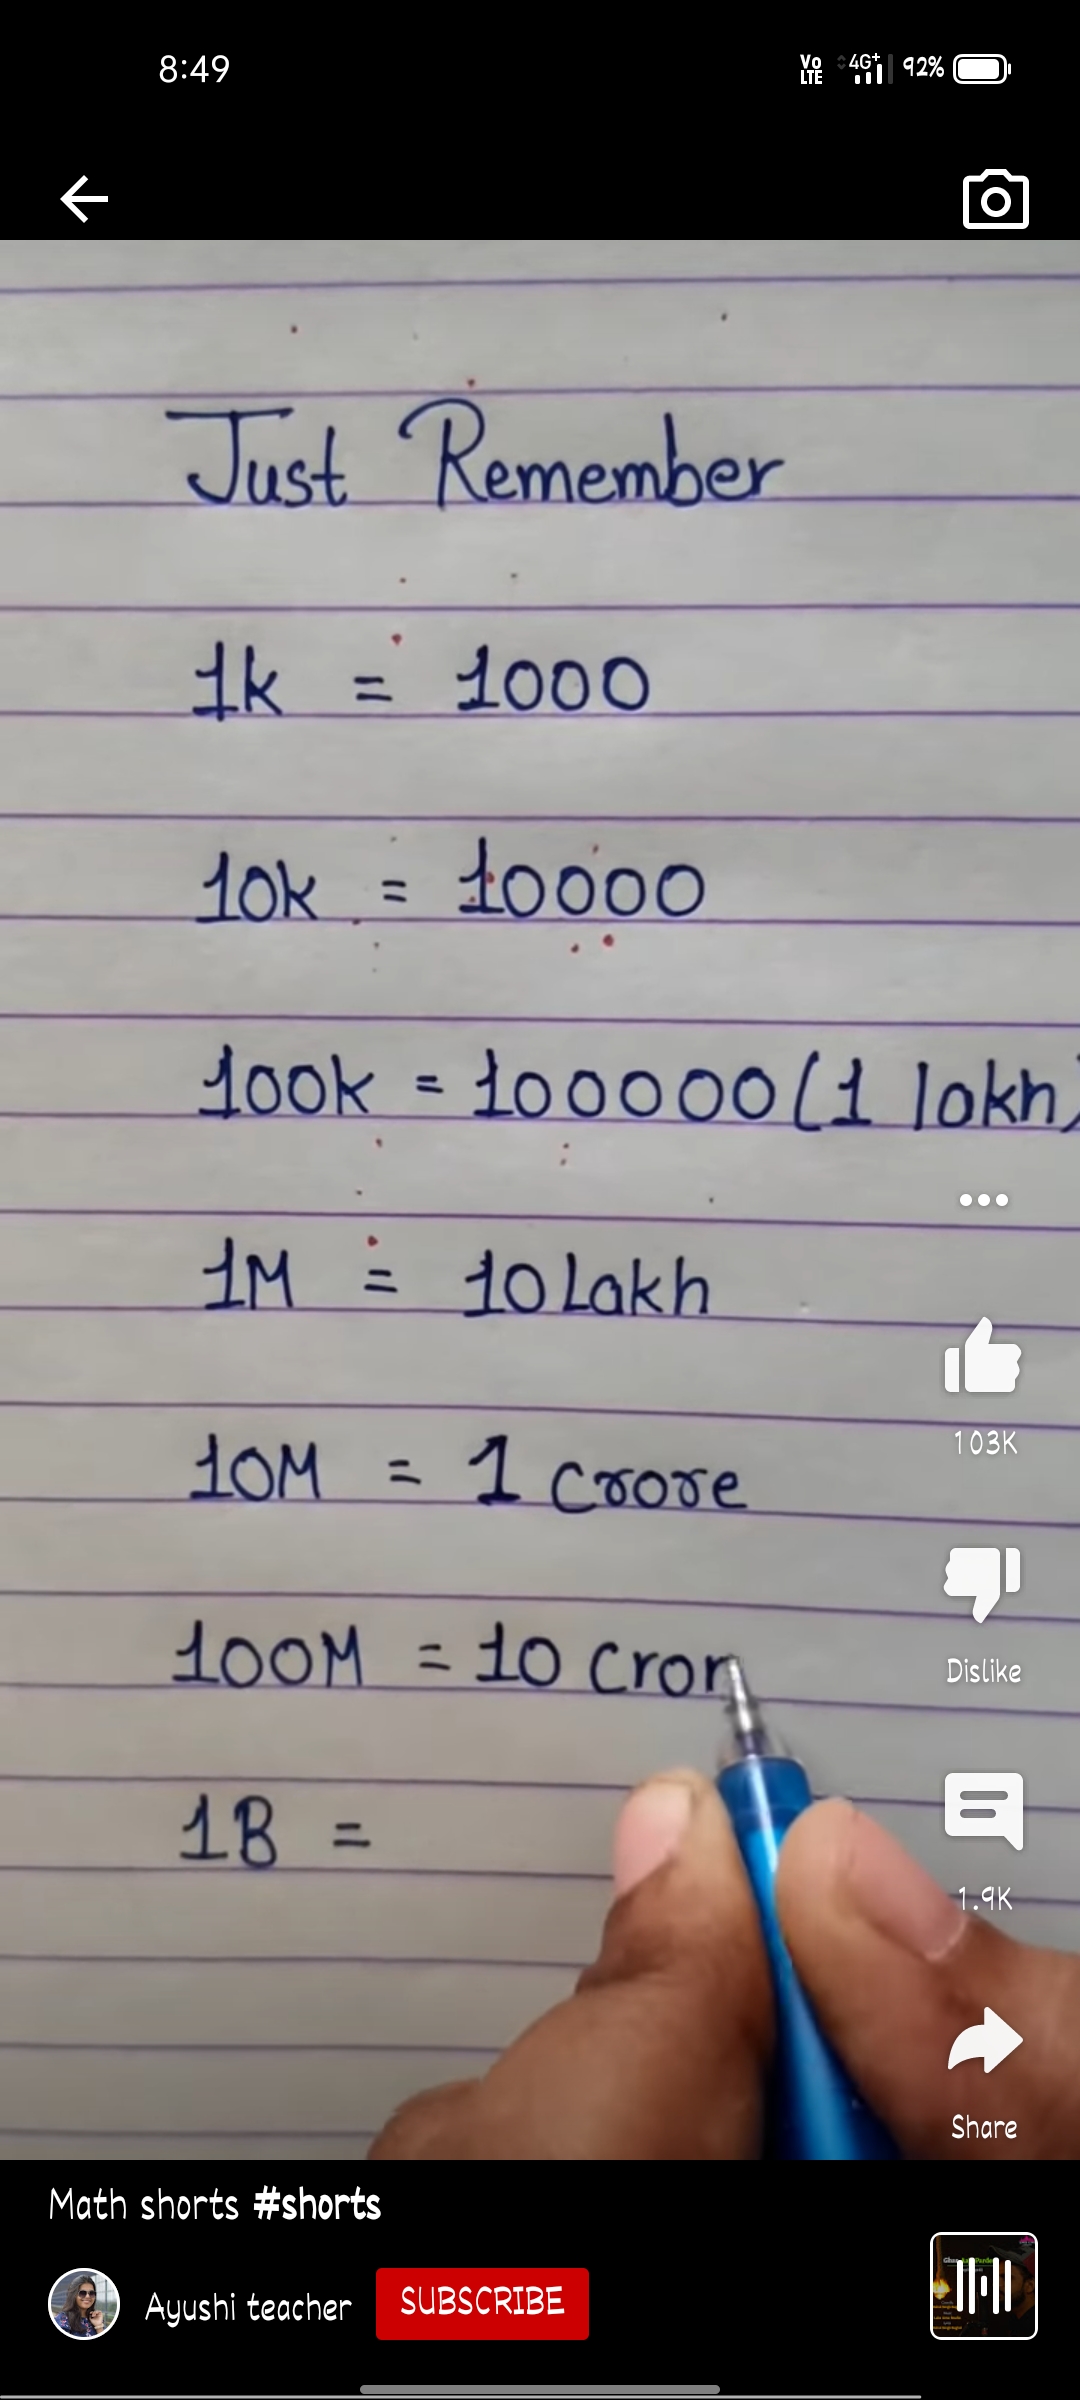 8:49 Vo LTE 4G+ 92%
Just Remember
1k = 1000
10k = 10000
100k = 100000 (1 lakh)
1M = 10 Lakh
10M = 1 Crore
103K
100M = 10 Cror
Dislike
1B =
1.9K
Share
Math shorts #shorts
Ayushi teacher SUBSCRIBE